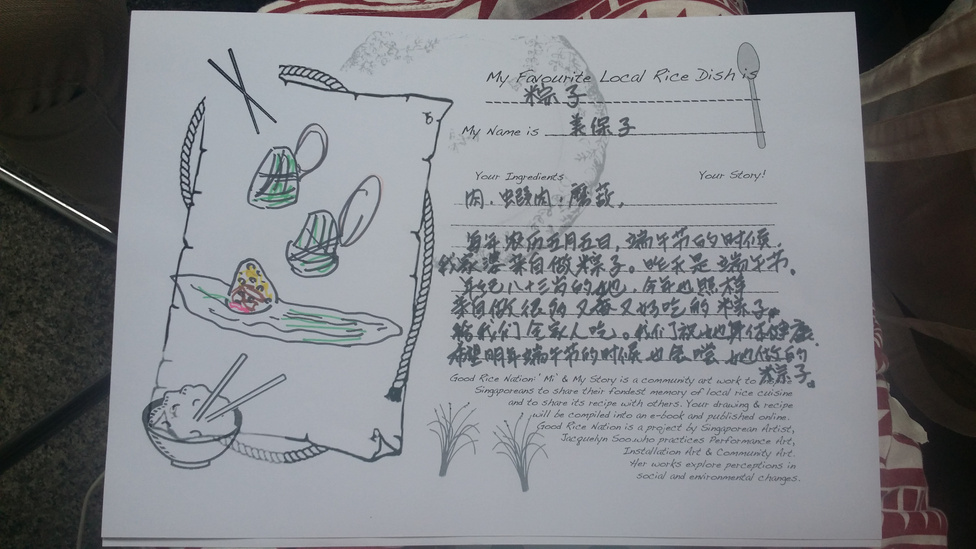 My Favourite Local Rice Dish is
粽子
My Name is
Your Ingredients
Your Story!
肉．肉．蘑菇。
每年农历五月五日，端午节的时候，
我家婆亲自做粽子。昨天是端午节。
年纪八十三岁的她，今年也照样
亲自做很多又香又好吃的粽子
给我们全家人吃。我们祝她身体健康．
希望明年端午节的时候也会尝她做的
粽子。
Good Rice Nation: 'Mi' & My Story is a community art work to
Singaporeans to share their fondest memory of local rice cuisine
and to share its recipe with others. Your drawing & recipe
will be compiled into an e-book and published online.
Good Rice Nation is a project by Singaporean Artist,
Jacquelyn Soo.who practices Performance Art,
Installation Art & Community Art.
Her works explore perceptions in
social and environmental changes.